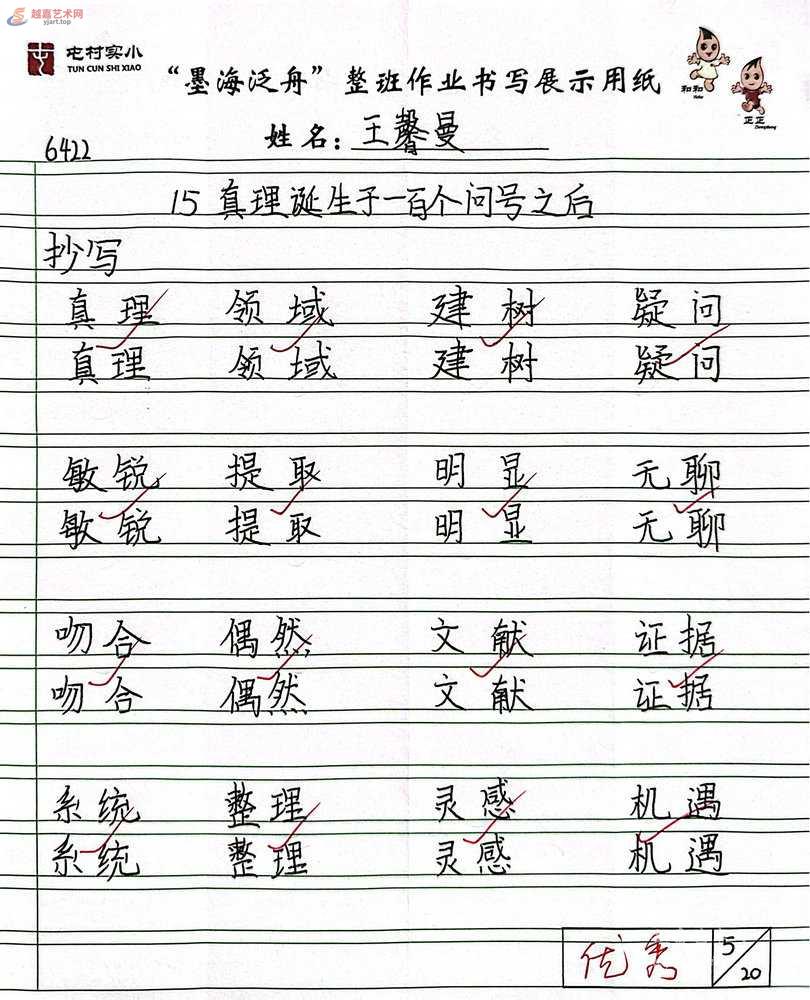 越嘉艺术网
yjart.top
屯村实小
TUN CUN SHI XIAO
“墨海泛舟”整班作业书写展示用纸
和和
正正
姓名：王馨曼
6422
15 真理诞生于一百个问号之后
抄写
真理 领域 建树 疑问
真理 领域 建树 疑问
敏锐 提取 明显 无聊
敏锐 提取 明显 无聊
吻合 偶然 文献 证据
吻合 偶然 文献 证据
系统 整理 灵感 机遇
系统 整理 灵感 机遇
优秀 5/20